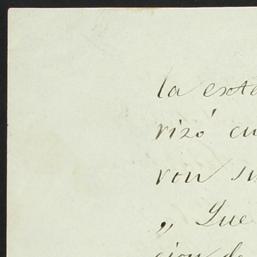 la exte
rizó en
ron su
„ Que
cion de